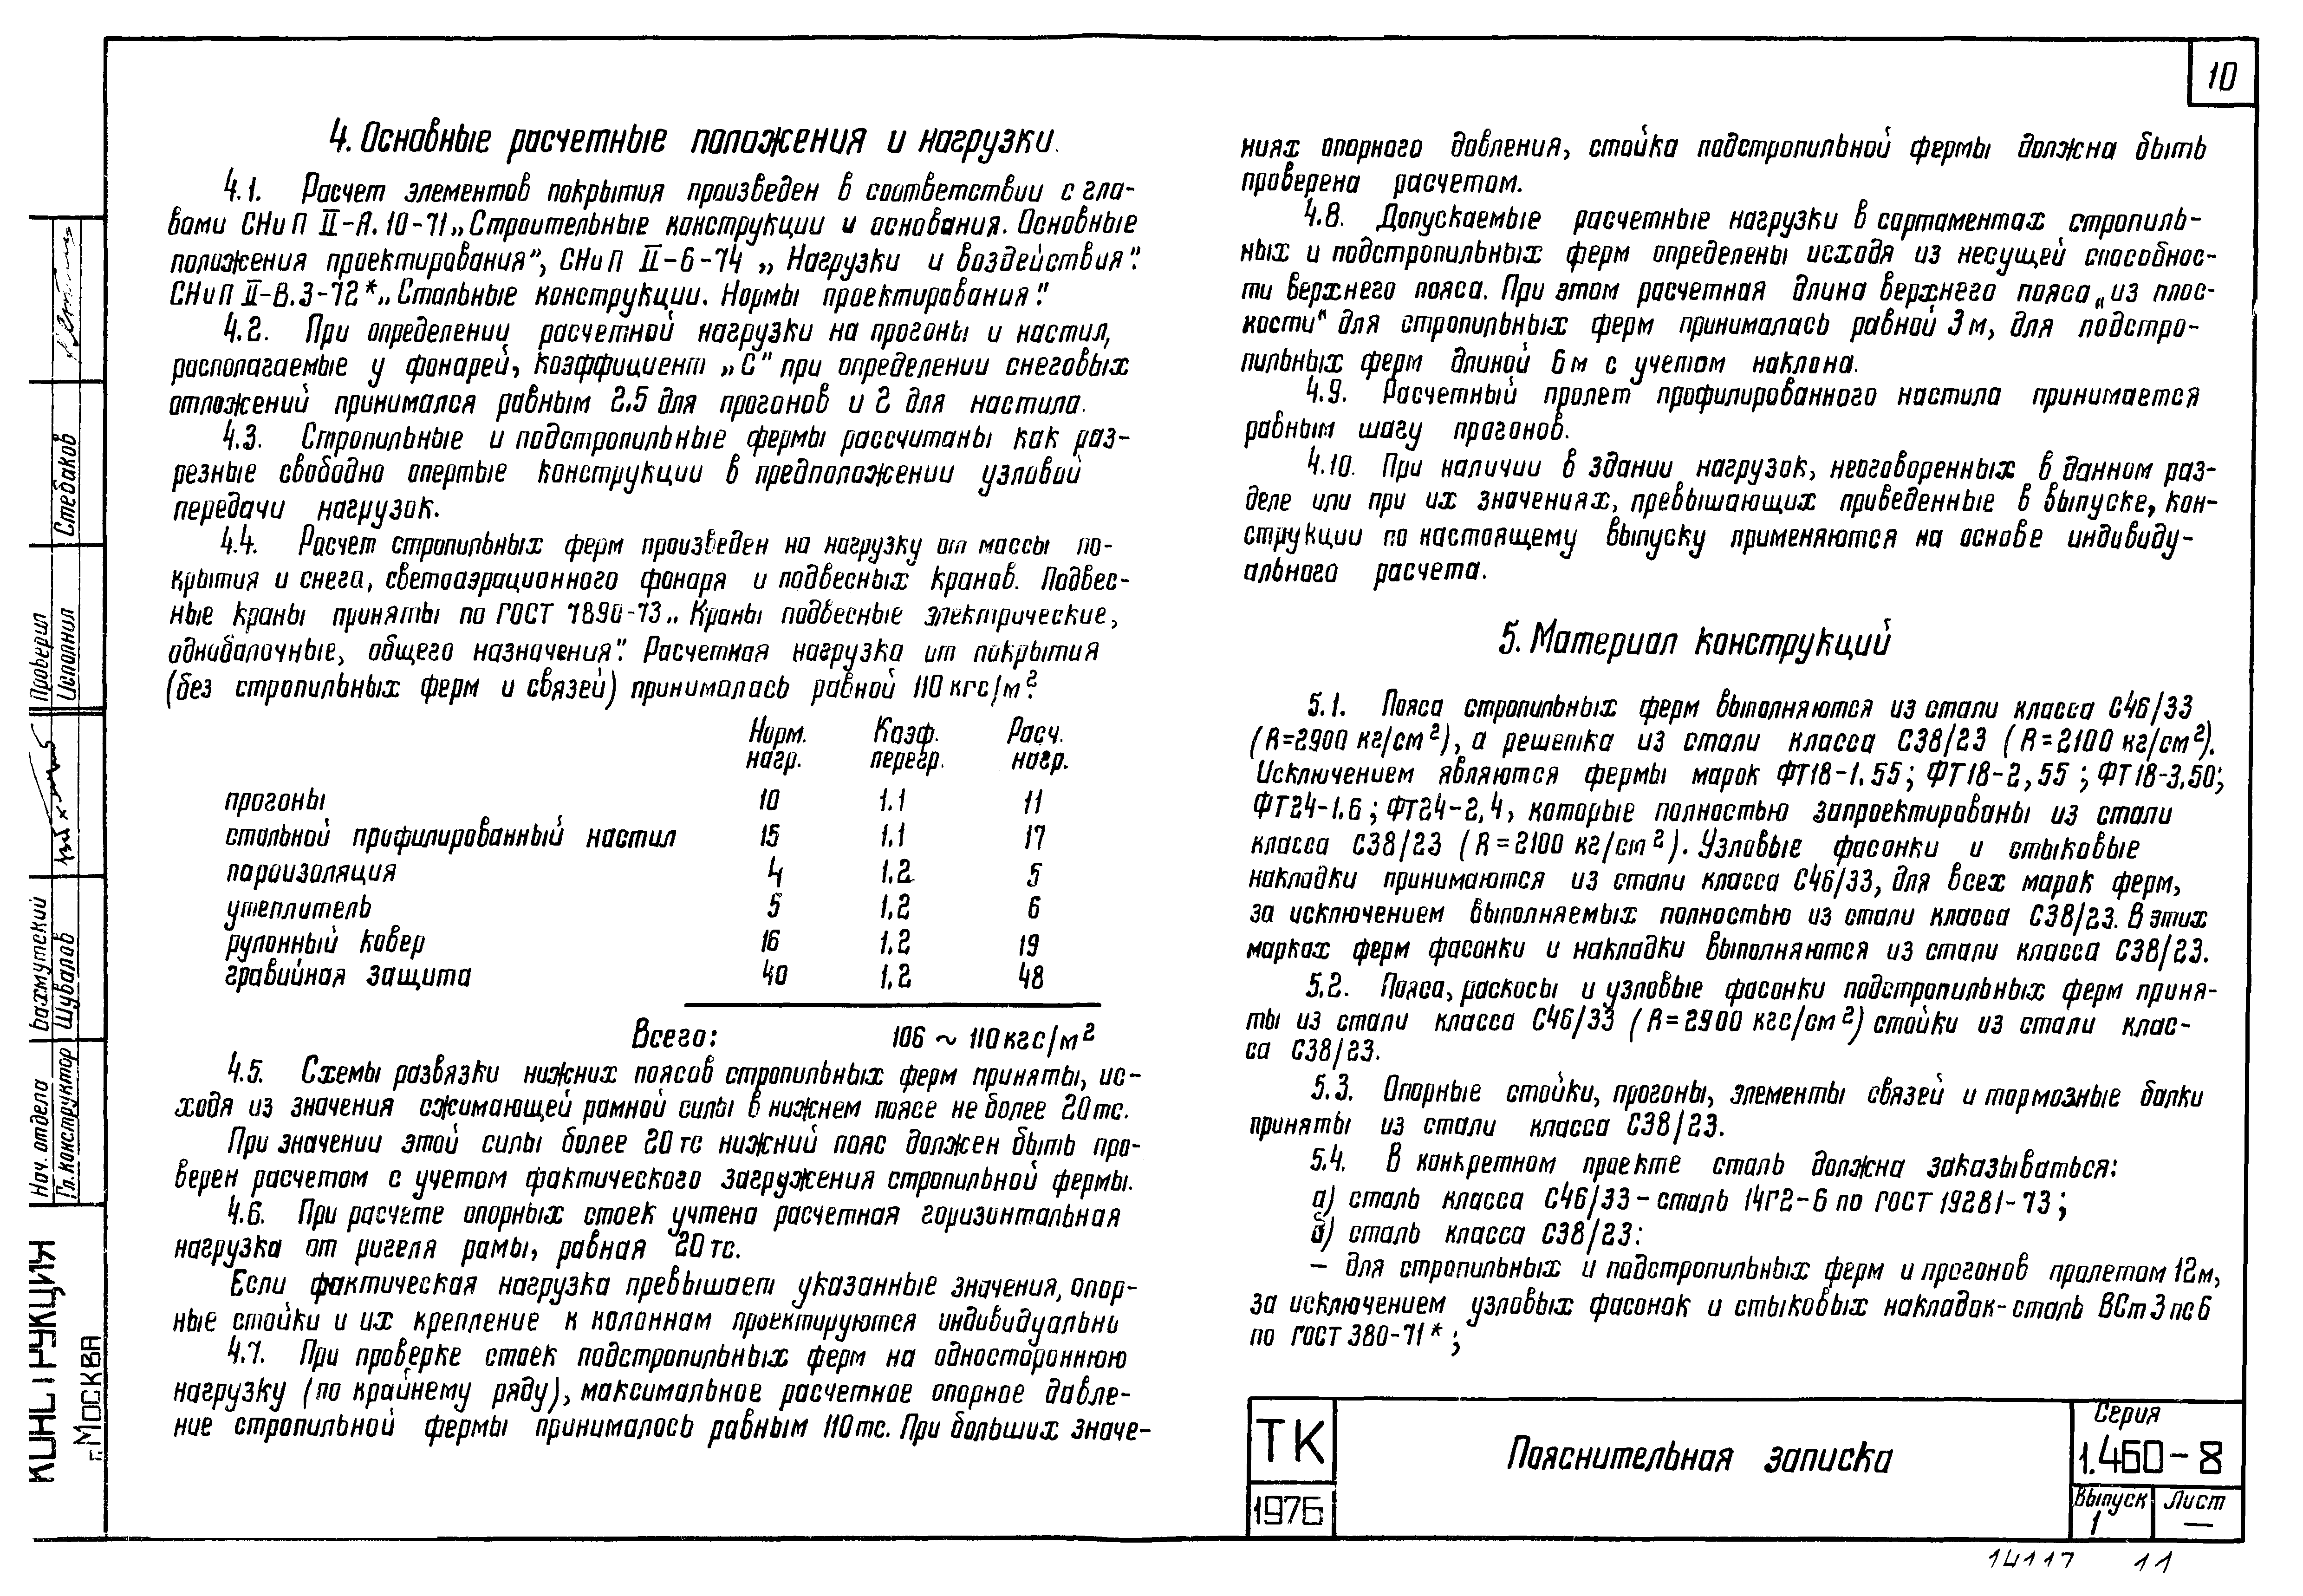 10
4. Основные расчетные положения и нагрузки.
4.1. Расчет элементов покрытия произведен в соответствии с гла-
вами СНиП II-А.10-71 „Строительные конструкции и основания. Основные
положения проектирования", СНиП II-6-74 „Нагрузки и воздействия".
СНиП II-В.3-72* „Стальные конструкции. Нормы проектирования".
4.2. При определении расчетной нагрузки на прогоны и настил,
располагаемые у фонарей, коэффициент „С" при определении снеговых
отложений принимался равным 2.5 для прогонов и 2 для настила.
4.3. Стропильные и подстропильные фермы рассчитаны как раз-
резные свободно опертые конструкции в предположении узловой
передачи нагрузок.
4.4. Расчет стропильных ферм произведен на нагрузку от массы по-
крытия и снега, светоаэрационного фонаря и подвесных кранов. Подвес-
ные краны приняты по ГОСТ 7890-73 „Краны подвесные электрические,
однобалочные, общего назначения". Расчетная нагрузка от покрытия
(без стропильных ферм и связей) принималась равной 110 кгс/м².
Норм. нагр. Коэф. перегр. Расч. нагр.
прогоны 10 1.1 11
стальной профилированный настил 15 1.1 17
пароизоляция 4 1.2 5
утеплитель 5 1.2 6
рулонный ковер 16 1.2 19
гравийная защита 40 1.2 48
Всего: 106 ~ 110 кгс/м²
4.5. Схемы развязки нижних поясов стропильных ферм приняты, ис-
ходя из значения сжимающей рамной силы в нижнем поясе не более 20 тс.
При значении этой силы более 20 тс нижний пояс должен быть про-
верен расчетом с учетом фактического загружения стропильной фермы.
4.6. При расчете опорных стоек учтена расчетная горизонтальная
нагрузка от ригеля рамы, равная 20 тс.
Если фактическая нагрузка превышает указанные значения, опор-
ные стойки и их крепление к колоннам проектируются индивидуально
4.7. При проверке стоек подстропильных ферм на одностороннюю
нагрузку (по крайнему ряду), максимальное расчетное опорное давле-
ние стропильной фермы принималось равным 110 тс. При больших значе-
ниях опорного давления, стойка подстропильной фермы должна быть
проверена расчетом.
4.8. Допускаемые расчетные нагрузки в сортаментах стропиль-
ных и подстропильных ферм определены исходя из несущей способнос-
ти верхнего пояса. При этом расчетная длина верхнего пояса „из плос-
кости" для стропильных ферм принималась равной 3м, для подстро-
пильных ферм длиной 6м с учетом наклона.
4.9. Расчетный пролет профилированного настила принимается
равным шагу прогонов.
4.10. При наличии в здании нагрузок, неоговоренных в данном раз-
деле или при их значениях, превышающих приведенные в выпуске, кон-
струкции по настоящему выпуску применяются на основе индивиду-
ального расчета.
5. Материал конструкций
5.1. Пояса стропильных ферм выполняются из стали класса С46/33
(R=2900 кг/см²), а решетка из стали класса С38/23 (R=2100 кг/см²).
Исключением являются фермы марок ФТ18-1.55; ФТ18-2,55; ФТ18-3,50;
ФТ24-1.6; ФТ24-2,4, которые полностью запроектированы из стали
класса С38/23 (R=2100 кг/см²). Узловые фасонки и стыковые
накладки принимаются из стали класса С46/33, для всех марок ферм,
за исключением выполняемых полностью из стали класса С38/23. В этих
марках ферм фасонки и накладки выполняются из стали класса С38/23.
5.2. Пояса, раскосы и узловые фасонки подстропильных ферм приня-
ты из стали класса С46/33 (R=2900 кгс/см²) стойки из стали клас-
са С38/23.
5.3. Опорные стойки, прогоны, элементы связей и тормозные балки
приняты из стали класса С38/23.
5.4. В конкретном проекте сталь должна заказываться:
а) сталь класса С46/33 - сталь 14Г2-6 по ГОСТ 19281-73;
б) сталь класса С38/23:
- для стропильных и подстропильных ферм и прогонов пролетом 12м,
за исключением узловых фасонок и стыковых накладок - сталь ВСт3пс6
по ГОСТ 380-71*;
ТК
1976
Пояснительная записка
Серия
1.460-8
Выпуск
1
Лист
—
14117 11
Проверил Стебаков
Исполнил
Нач. отдела Бахмутский
Гл. конструктор Шувалов
г. Москва